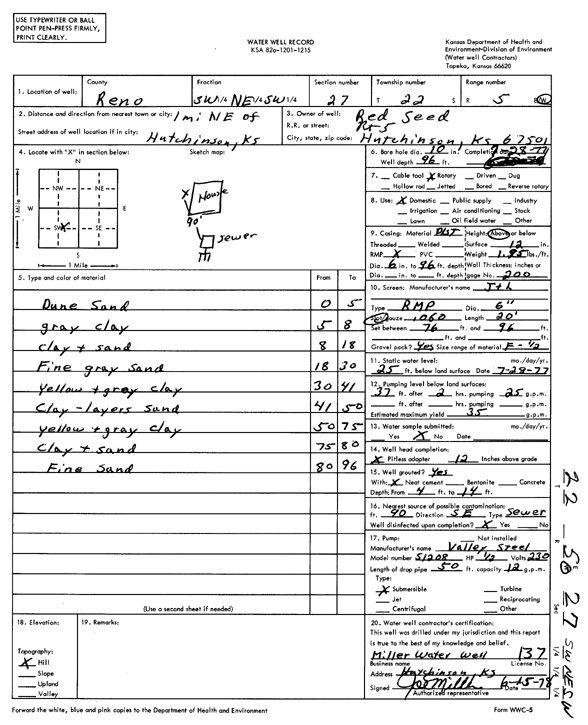 USE TYPEWRITER OR BALL
POINT PEN-PRESS FIRMLY,
PRINT CLEARLY.
WATER WELL RECORD
KSA 82a-1201-1215
Kansas Department of Health and
Environment-Division of Environment
(Water well Contractors)
Topeka, Kansas 66620
1. Location of well: County Reno Fraction SW 1/4 NE 1/4 SW 1/4 Section number 27 Township number T 22 S Range number R 5 E/W
2. Distance and direction from nearest town or city: 1 mi NE of
Street address of well location if in city: Hutchinson, Ks
3. Owner of well: Red Seed
R.R. or street: Rt 5
City, state, zip code: Hutchinson, Ks 67501
4. Locate with "X" in section below:
Sketch map:
N
NW NE
W E
SW X SE
S
1 Mile
1 Mile
X House
90'
sewer
6. Bore hole dia. 10 in. Completion 7-28-77
Well depth 96 ft.
7. Cable tool X Rotary Driven Dug
Hollow rod Jetted Bored Reverse rotary
8. Use: X Domestic Public supply Industry
Irrigation Air conditioning Stock
Lawn Oil field water Other
9. Casing: Material Plst Height: Above or below
Threaded Welded Surface 12 in.
RMP X PVC Weight 1.95 lbs./ft.
Dia. 6 in. to 96 ft. depth Wall Thickness: inches or
Dia. in. to ft. depth gage No. 200
10. Screen: Manufacturer's name J+L
Type RMP Dia. 6"
Slot/gauze .060 Length 20'
Set between 76 ft. and 96 ft.
ft. and ft.
Gravel pack? Yes Size range of material F-1/2
11. Static water level: mo./day/yr.
25 ft. below land surface Date 7-28-77
12. Pumping level below land surfaces:
37 ft. after 2 hrs. pumping 25 g.p.m.
ft. after hrs. pumping g.p.m.
Estimated maximum yield 35 g.p.m.
13. Water sample submitted: mo./day/yr.
Yes X No Date
14. Well head completion:
X Pitless adapter 12 Inches above grade
15. Well grouted? Yes
With: X Neat cement Bentonite Concrete
Depth: From 4 ft. to 14 ft.
16. Nearest source of possible contamination:
ft. 90 Direction SE Type Sewer
Well disinfected upon completion? X Yes No
17. Pump: Not installed
Manufacturer's name Valley Steel
Model number S1208 HP 1/2 Volts 230
Length of drop pipe 50 ft. capacity 12 g.p.m.
Type:
X Submersible Turbine
Jet Reciprocating
Centrifugal Other
5. Type and color of material From To
Dune Sand 0 5
gray clay 5 8
clay + sand 8 18
Fine gray sand 18 30
yellow + grey clay 30 41
Clay-layers sand 41 50
yellow + gray clay 50 75
Clay + sand 75 80
Fine Sand 80 96
(Use a second sheet if needed)
18. Elevation:
19. Remarks:
Topography:
X Hill
Slope
Upland
Valley
20. Water well contractor's certification:
This well was drilled under my jurisdiction and this report
is true to the best of my knowledge and belief.
Miller Water Well 137
Business name License No.
Address Hutchinson Ks
Signed Date 6-15-78
Authorized representative
Forward the white, blue and pink copies to the Department of Health and Environment
Form WWC-5
T 22 - R 5 E W Sec 27 SW NE SW
1/4 1/4 1/4